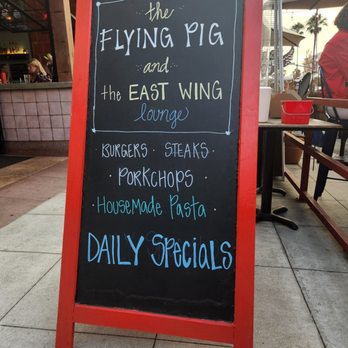 the
FLYING PIG
and
the EAST WING
lounge
BURGERS · STEAKS ·
PORKCHOPS
· HOUSEMADE PASTA ·
DAILY SPECIALS